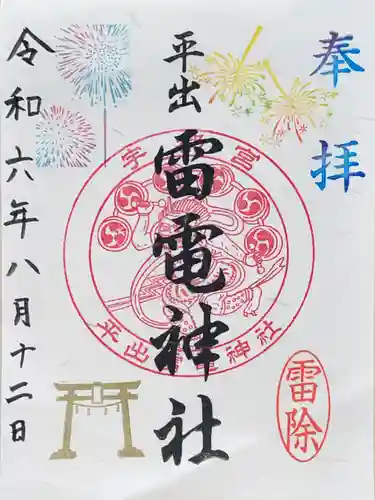 奉拝
平出
雷電神社
令和六年八月十二日
宇
宮
平出雷電神社
雷除